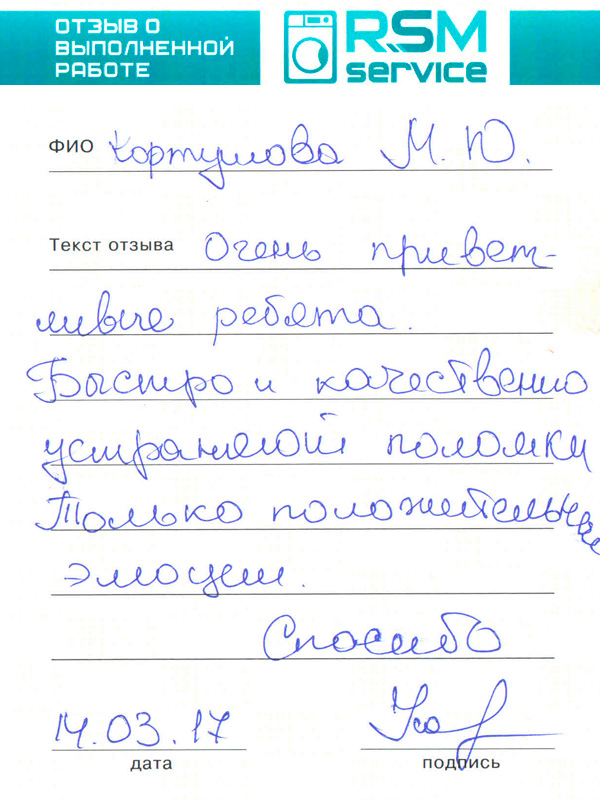 ОТЗЫВ О
ВЫПОЛНЕННОЙ
РАБОТЕ
RSM
service
ФИО Кортунова М. Ю.
Текст отзыва Очень привет-
ливые ребята.
Быстро и качественно
устраняют поломки
Только положительные
эмоции.
Спасибо
14.03.17
дата
подпись